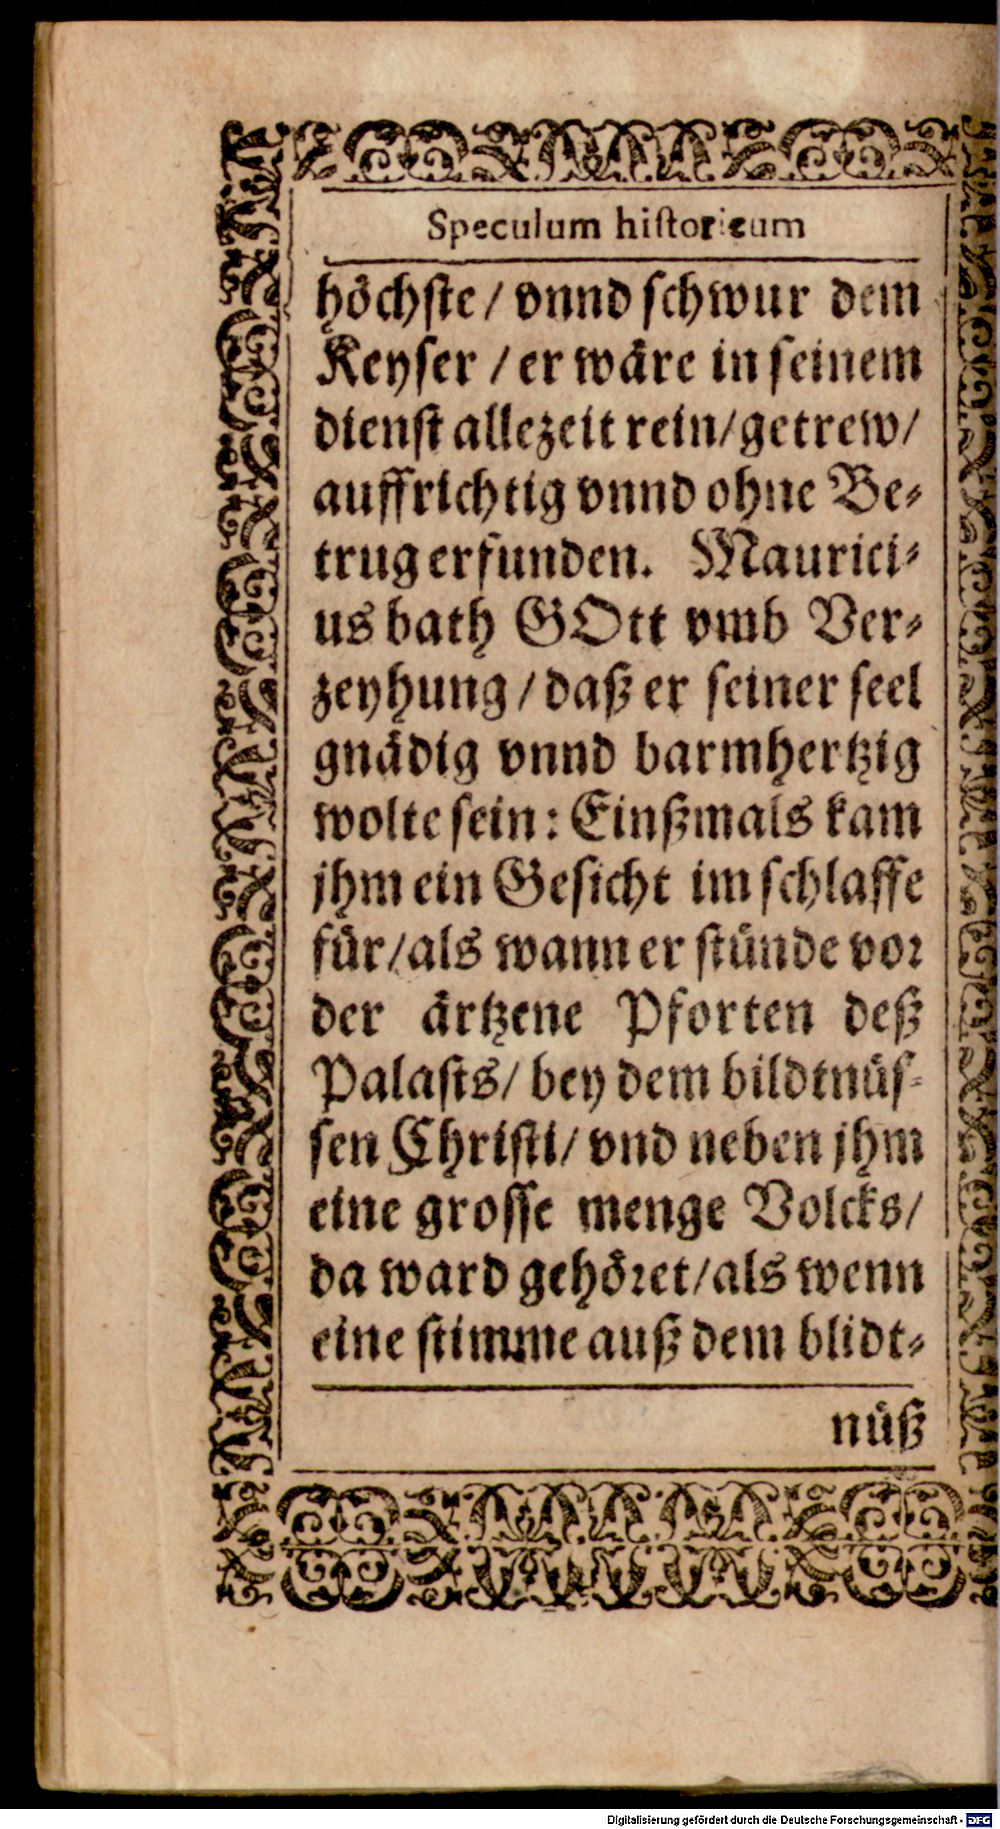 Speculum historicum
höchste/ vnnd schwur dem
Keyser / er wäre in seinem
dienst allezeit rein/getrew/
auffrichtig vnnd ohne Be-
trug erfunden. Maurici-
us bath GOtt vmb Ver-
zeyhung/ daß er seiner seel
gnädig vnnd barmhertzig
wolte sein: Einßmals kam
jhm ein Gesicht im schlaffe
für/als wann er stünde vor
der ärtzene Pforten deß
Palasts/ bey dem bildtnüs-
sen Christi/ vnd neben jhm
eine grosse menge Volcks/
da ward gehöret/als wenn
eine stimme auß dem blidt-
nüß
Digitalisierung gefördert durch die Deutsche Forschungsgemeinschaft - DFG